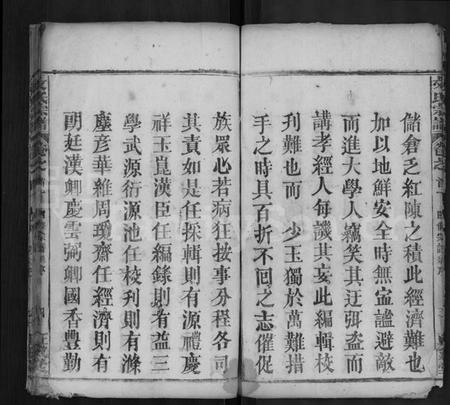 儲倉乏紅陳之積此經濟難也
加以地鮮安全時無寍謐避敵
而進大學人竊笑其迂弭盗而
講孝經人每譏其妄此編輯校
刋難也而　少玉獨於萬難措
手之時具百折不回之志催促
族眾心若病狂按事分程各司
其責如是任採輯則有源禮慶
祥玉崑漢臣任編錄則有益三
學武源衍源池任校刋則有滌
塵彦華維周瓊齋任經濟則有
朗廷漢卿慶雲弼卿國香豊勤